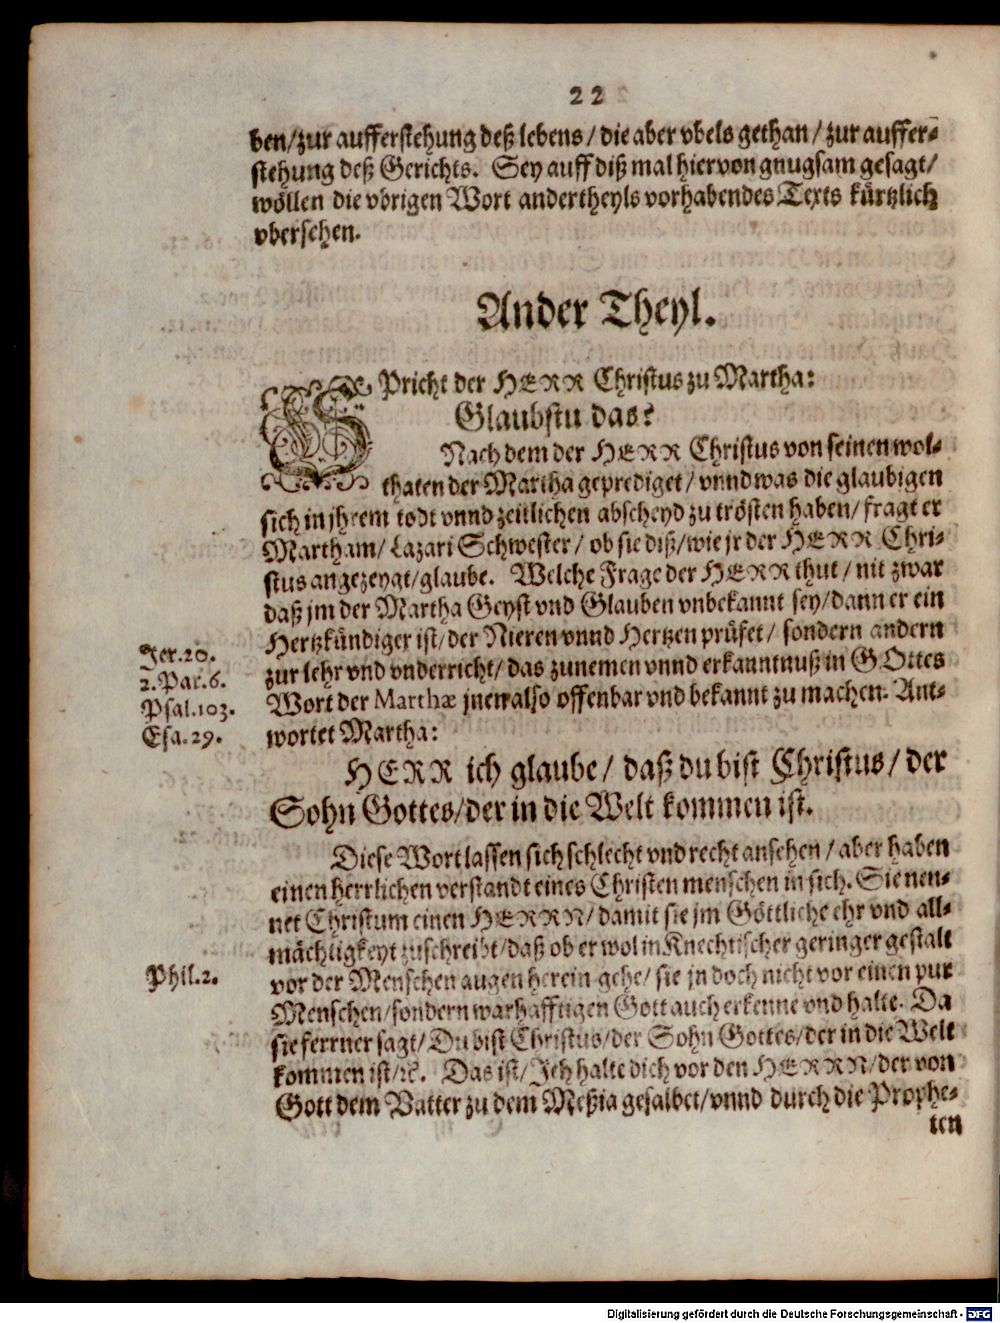 22
ben/zur aufferstehung deß lebens/ die aber vbels gethan/ zur auffer-
stehung deß Gerichts. Sey auff diß mal hiervon gnugsam gesagt/
wöllen die vbrigen Wort andertheyls vorhabendes Texts kürtzlich
vbersehen.
Ander Theyl.
SPricht der HERR Christus zu Martha:
Glaubstu das?
Nach dem der HERR Christus von seinen wol-
thaten der Martha geprediget/ vnnd was die glaubigen
sich in jhrem todt vnnd zeitlichen abscheyd zu trösten haben/ fragt er
Martham/ Lazari Schwester/ ob sie diß/ wie jr der HERR Chri-
stus angezeygt/ glaube. Welche Frage der HERR thut/ nit zwar
daß jm der Martha Geyst vnd Glauben vnbekannt sey/ dann er ein
Hertzkündiger ist/ der Nieren vnnd Hertzen prüfet/ sondern andern
Jer.20.
zur lehr vnd vnderricht/ das zunemen vnnd erkanntnuß in GOttes
2.Par.6.
Wort der Marthæ jnen also offenbar vnd bekannt zu machen. Ant-
Psal.103.
wortet Martha:
Esa.29.
HERR ich glaube/ daß du bist Christus/ der
Sohn Gottes/ der in die Welt kommen ist.
Diese Wort lassen sich schlecht vnd recht ansehen/ aber haben
einen herrlichen verstandt eines Christen menschen in sich. Sie nen-
net Christum einen HERRN/ damit sie jm Göttliche ehr vnd all-
mächtigkeyt zuschreibt/ daß ob er wol in Knechtischer geringer gestalt
Phil.2.
vor der Menschen augen herein gehe/ sie jn doch nicht vor einen pur
Menschen/ sondern warhafftigen Gott auch erkenne vnd halte. Da
sie ferrner sagt/ Du bist Christus/ der Sohn Gottes/ der in die Welt
kommen ist/ ꝛc. Das ist/ Jch halte dich vor den HERRN/ der von
Gott dem Vatter zu dem Meßia gesalbet/ vnnd durch die Prophe-
ten
Digitalisierung gefördert durch die Deutsche Forschungsgemeinschaft - DFG